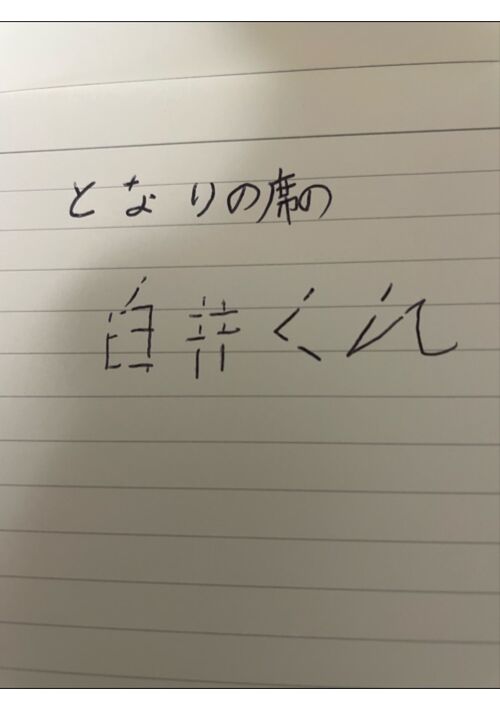 となりの席の
白井くん